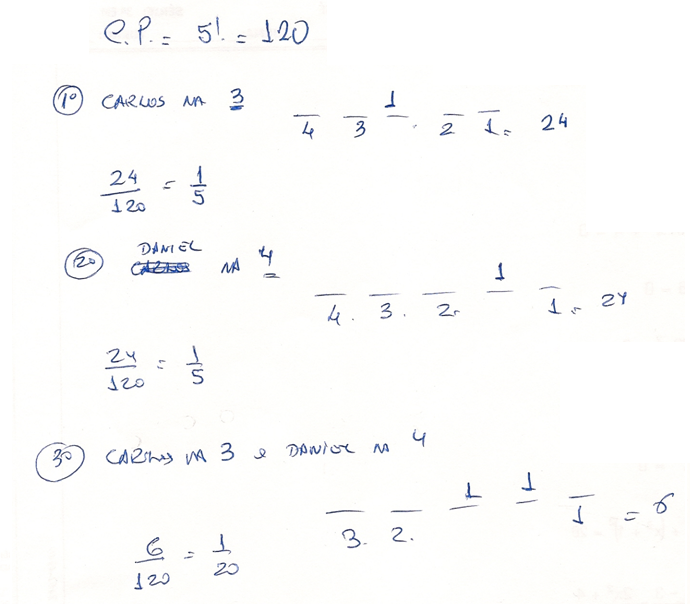 C.P. = 5! = 120
1º CARLOS NA 3
1
4 3 . 2 1 = 24
24/120 = 1/5
DANIEL
2º CARLOS NA 4
1
4. 3. 2. 1 = 24
24/120 = 1/5
3º CARLOS NA 3 e DANIEL NA 4
1 1
3. 2. 1 = 6
6/120 = 1/20